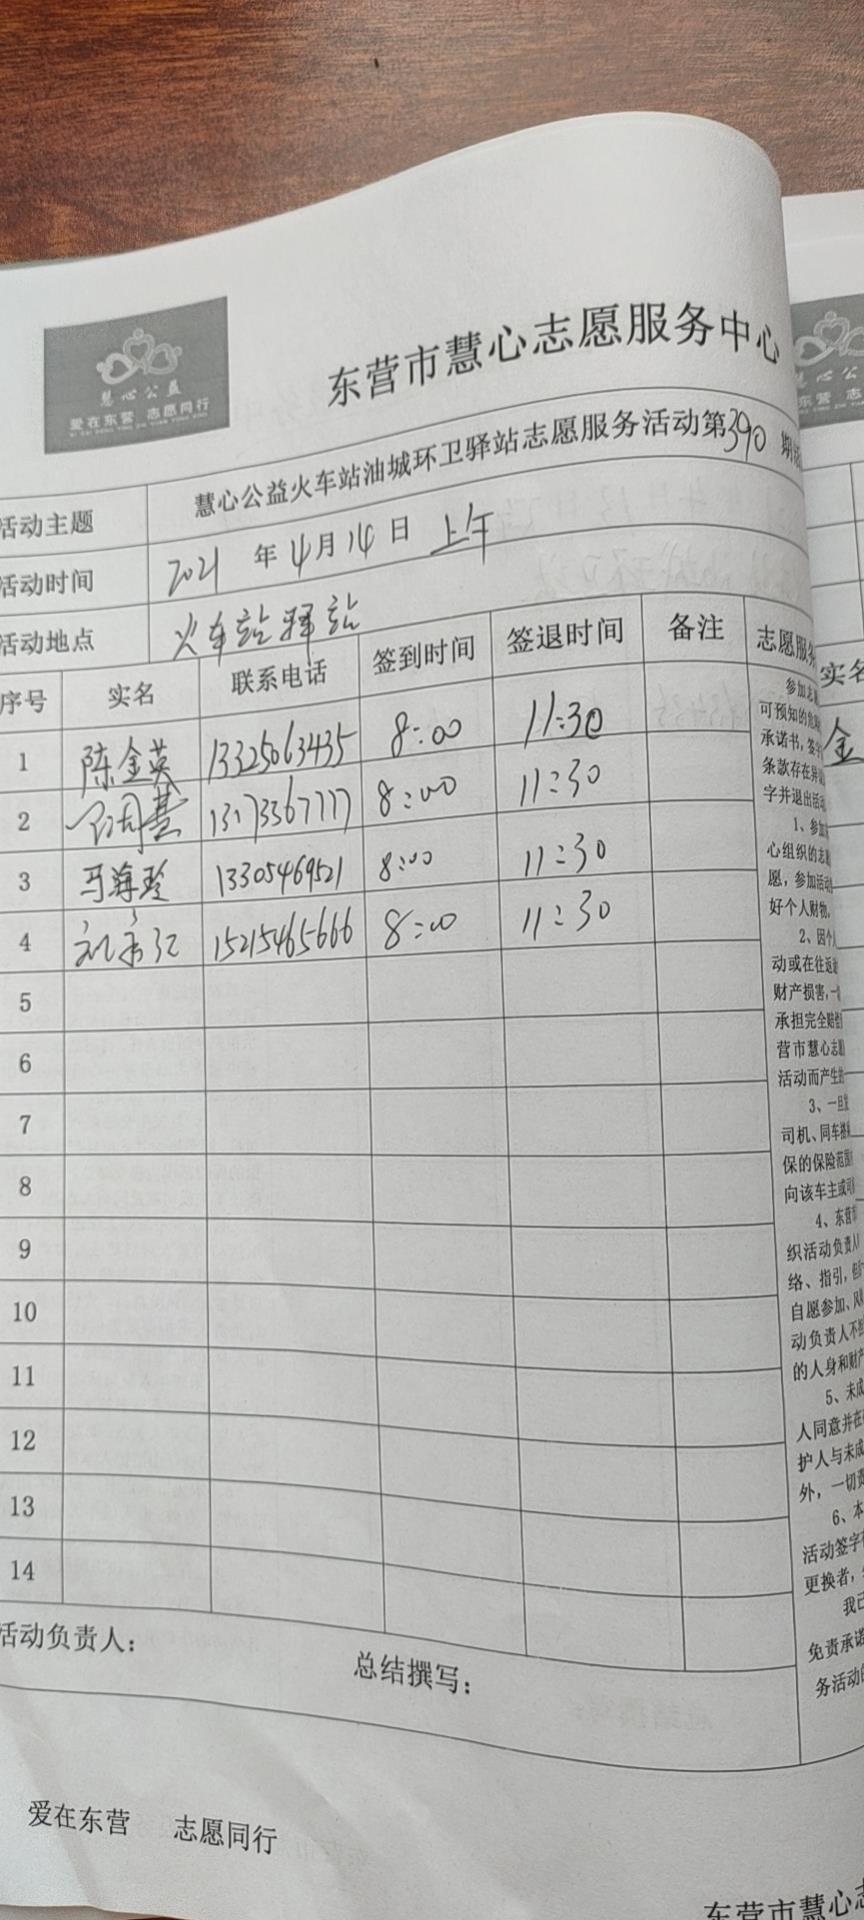 慧心公益
爱在东营 志愿同行
东营市慧心志愿服务中心
活动主题 慧心公益火车站油城环卫驿站志愿服务活动第390 期活
活动时间 2021 年 4月 14 日 上午
活动地点 火车站驿站
序号 实名 联系电话 签到时间 签退时间 备注 志愿服务
1 陈金英 13325063435 8:00 11:30
2 13173367777 8:00 11:30
3 马海玲 13305469521 8:00 11:30
4 15215465666 8:00 11:30
5
6
7
8
9
10
11
12
13
14
活动负责人：
总结撰写：
爱在东营 志愿同行
参加志愿
可预知的危险
承诺书，签字
条款存在异
字并退出活动
1、参加
心组织的志愿
愿，参加活动
好个人财物。
2、因个人
动或在往返途
财产损害，一
承担完全赔偿
营市慧心志愿
活动而产生的
3、一旦发
司机、同车搭
保的保险范围
向该车主或司
4、东营市
织活动负责人
络、指引，但
自愿参加、风
动负责人不
的人身和财产
5、未成
人同意并在
护人与未成
外，一切责
6、本
活动签字
更换者，
我已
免责承诺
务活动的
慧心公
东营 志
实名
金
东营市慧心志